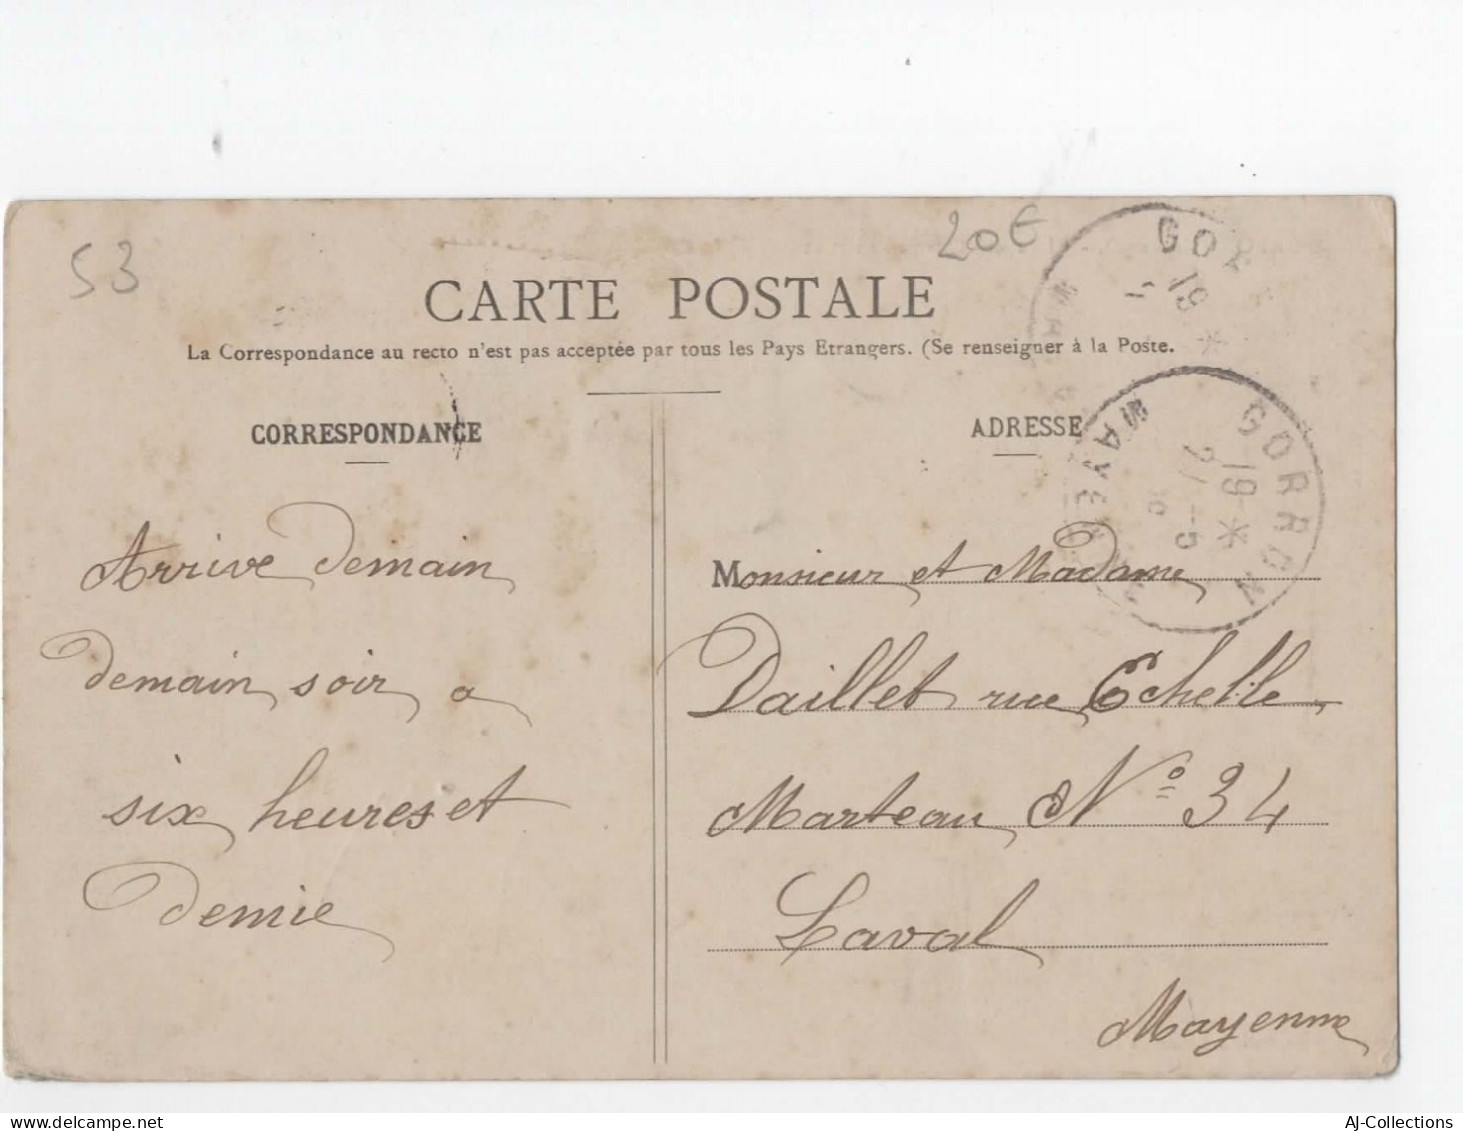 53
20€
CARTE POSTALE
La Correspondance au recto n'est pas acceptée par tous les Pays Etrangers. (Se renseigner à la Poste.
CORRESPONDANCE
Arrive Demain
demain soir a
six heures et
Demie
ADRESSE
Monsieur et Madame
Daillet rue Echelle
Marteau N° 34
Laval
Mayenne
GOR
19
*
GORRON
19
*
MAYENNE
AJ-Collections